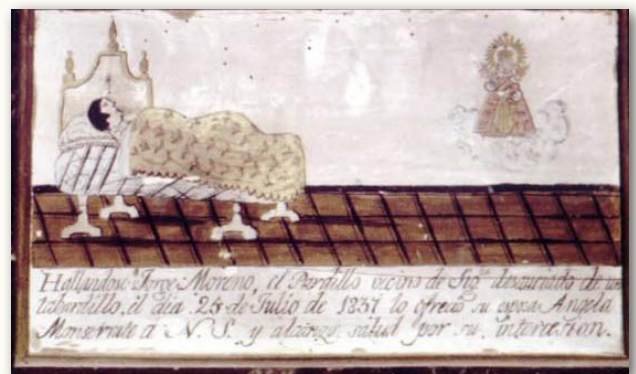 Hallandose Jorge Moreno, el Pargillo vecino de Sig.ª desauciado de un
tabardillo, el dia 25 de Julio de 1837 lo ofreció su esposa Angela
Monserrate a N. S. y alcanzó salud por su intercesion.